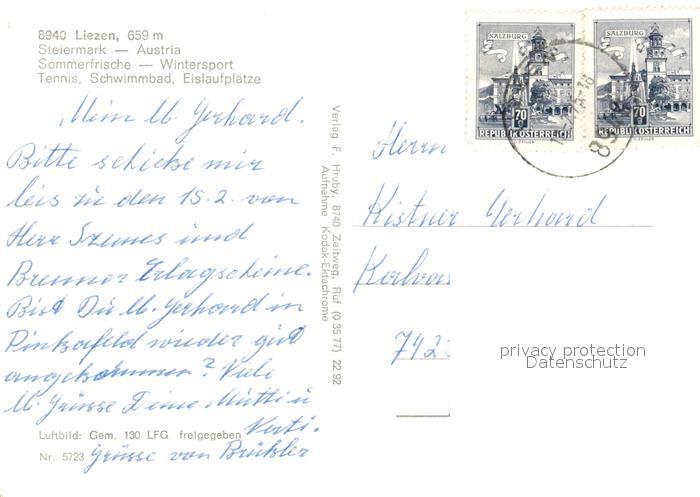 8940 Liezen, 659 m
Steiermark — Austria
Sommerfrische — Wintersport
Tennis, Schwimmbad, Eislaufplätze
SALZBURG
70
REPUBLIK ÖSTERREICH
SALZBURG
70
REPUBLIK ÖSTERREICH
Mein lb. Gerhard.
Bitte schicke mir
bis zu den 15.2. von
Herr Szemes und
Brenner Erlagscheine.
Bist Du lb. Gerhard in
Pinkafeld wieder gut
angekommen? Viele
lb. Grüsse Deine Mutti u
Grüsse von Brückler
Luftbild: Gem. 130 LFG. freigegeben
Nr. 5723
Verlag F. Hruby, 8740 Zeltweg, Ruf (0 35 77) 22 92
Aufnahme Kodak-Ektachrome
Herrn
Kistner Gerhard
742
privacy protection
Datenschutz